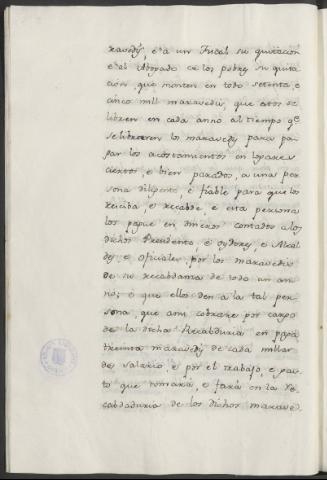 ravedís, e a un Fiscal su quitacion
e al Abogado de los pobres su quita
cion, que monten en todo setenta e
cinco mill maravedis, que estos se
libren en cada anno al tiempo qe
se libraren los maravedis para pa
gar los acostamientos en logares
ciertos, e bien parados, a una per
sona diligente e fiable para que los
reciba, e recabde, e esta persona
los pague en dineros contados a los
dichos Presidente, e oydores, e Alcal
des, e oficiales, por los maravedis
de su recabdanza de todo un an
no; e que ellos den a la tal per
sona, que ansi cobrare por cargo
de la dicha Recabduria en paga
treinta maravedis de cada millar
de salario, e por el trabajo, e gas
to que tomará, e fará en la Re
cabdaduria de los dichos maraved